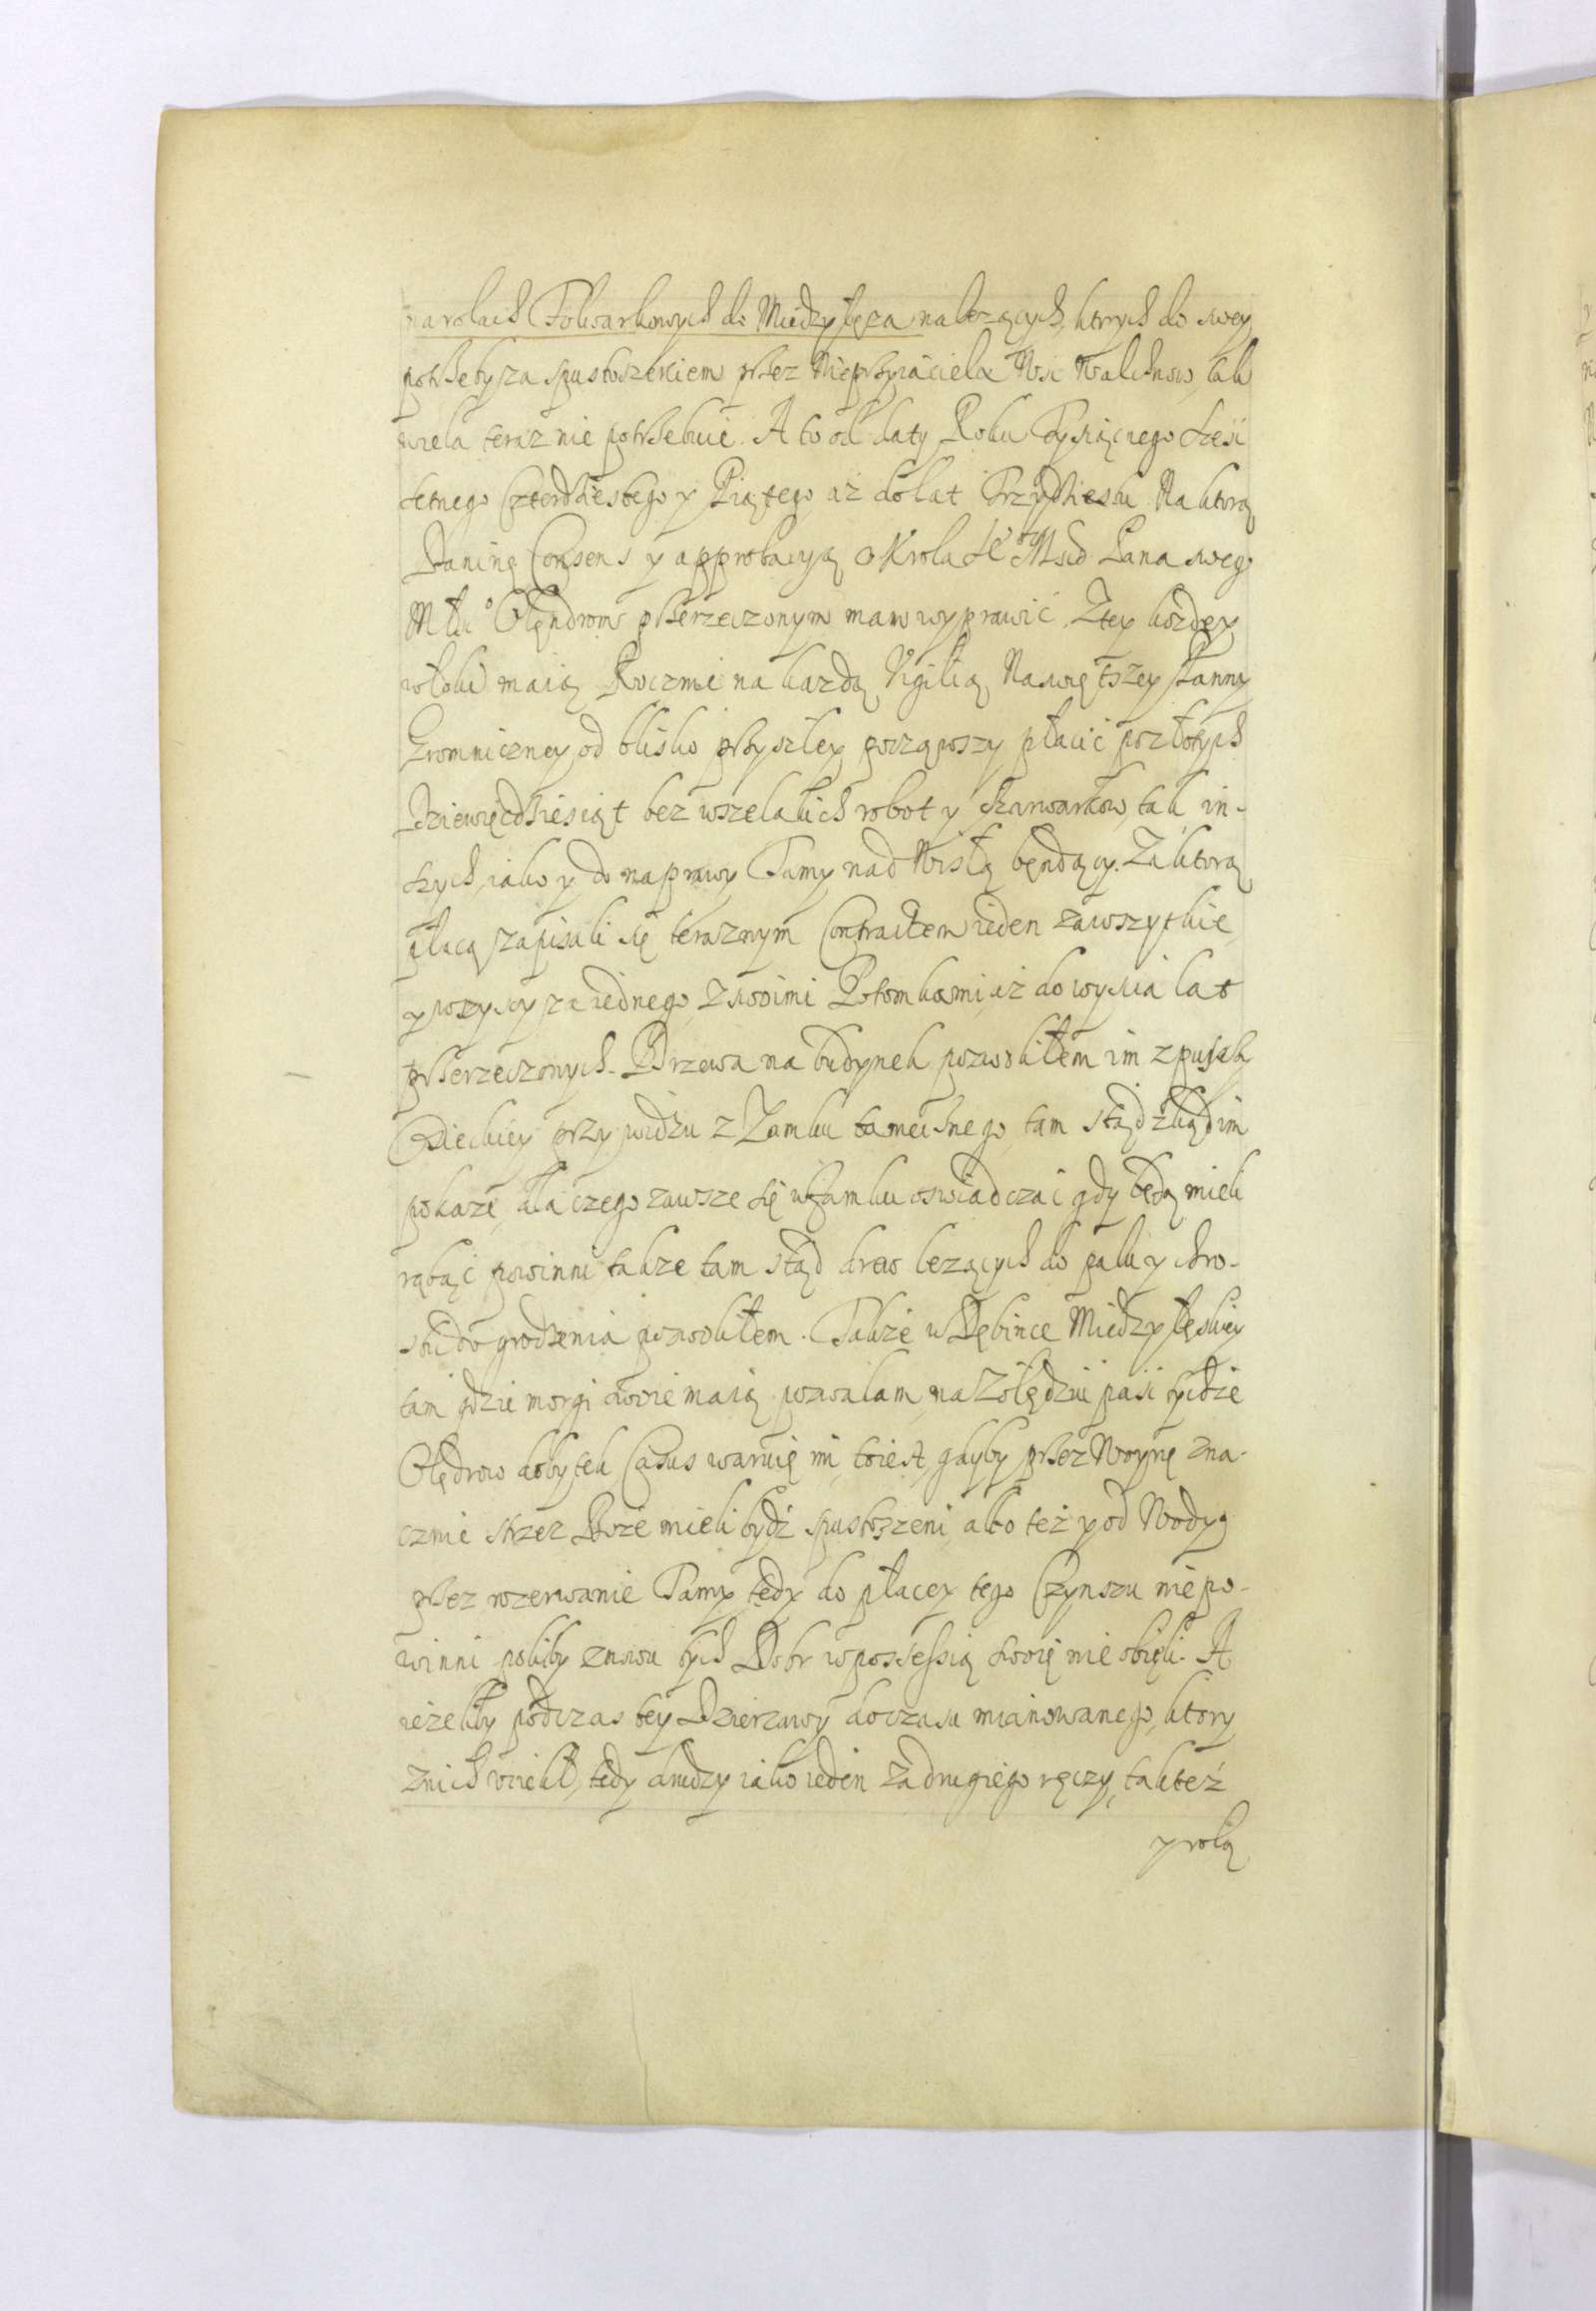 na rolach Folwarkowych do Miedzyłęza nalezących, ktrych do swey
potrzeby za spustoszeniem przez Nieprzyiaciela Wsi Walichnow, tak
wiela teraz nie potrzebuie. A to od daty Roku Tysiącnego Sześć
setnego Czterdziestego y Piątego aż do lat Trzydziestu. Na ktorą
Daninę Consens y approbacyą o Krola Je Mści Pana swego
Młłu Olendrom przerzeczonym mam wyprawić. Z tey kozdey
włoki maią Rocznie na kazdą Vigilią Naswiętszey Panny
Gromniczney od blisko przyszłey począwszy płacić po złotych
Dziewięcdziesiąt bez wszelakich robot y szarwarkow, tak in-
szych, iako y do naprawy Tamy nad Wisłą będący. Za ktorą
płacą zapisali się teraznym Contractem ieden za wszytkie
y wszyscy za iednego, z swoimi Potomkami, aż do wyscia lat
przerzeczonych. Drzewa na budynek pozwoliłem im z puszczy
Osieckiey przy widzu z Zamku tamecznego, tam stąd zkąd im
pokaze, dla czego zawsze się w Zamku oswiadczać gdy będą mieli
rąbąć powinni, takze tam stąd drew lezących do palu y chro-
stu do grodzenia pozwoliłem. Takze w Dębince Miedzyłęskiey
tam gdzie morgi swoie maią pozwalam, na Zołędzie paść będzie
Olędrow dobytek, Casus waruię im, toiest, gdyby przez Woynę zna-
cznie strzez Boze mieli bydź spustoszeni, albo też pod Wodyą
przez rozerwanie Tamy, tedy do płacey tego Czynszu nie po-
winni pokiby znowu tych Dobr w possessią swoię nie obięli. A
iezeliby podczas tey Dzierzawy do czasu mianowanego, ktory
z nich uciekł, tedy drudzy iako ieden za drugiego ręczy, tak też
y rolą